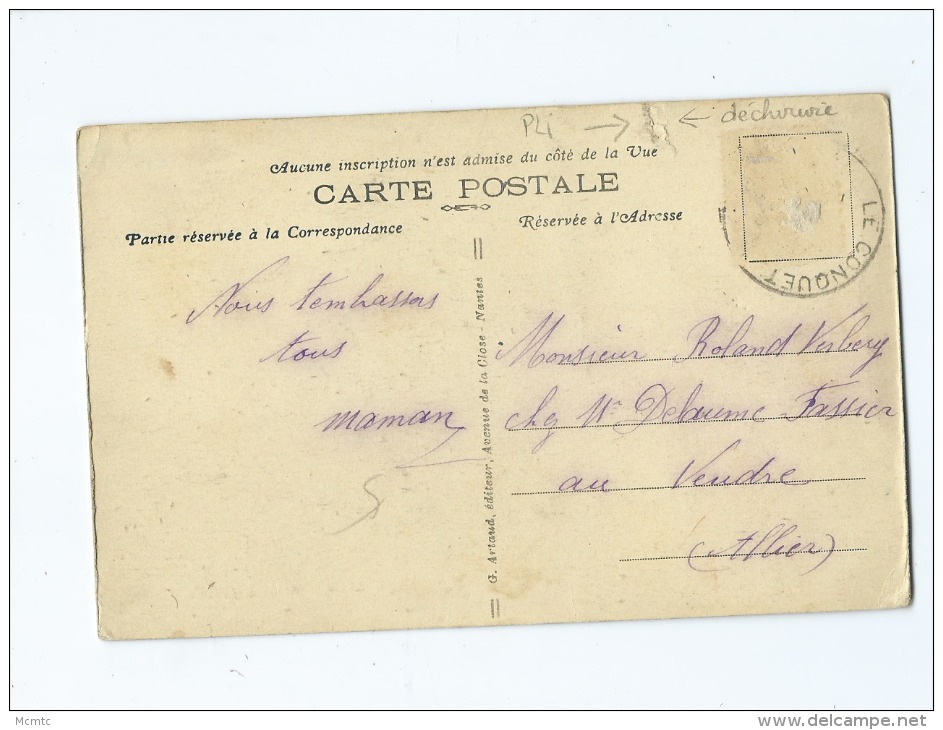 PLi → ← déchirure
Aucune inscription n'est admise du côté de la Vue
CARTE POSTALE
Partie réservée à la Correspondance
Réservée à l'Adresse
LE CONQUET
Nous tembassons
tous
maman
G. Artaud, éditeur, Avenue de la Close - Nantes
Monsieur Roland Verbery
chez Mr Delaume-Fassier
au Veudre
(Allier)
Mcmtc
www.delcampe.net